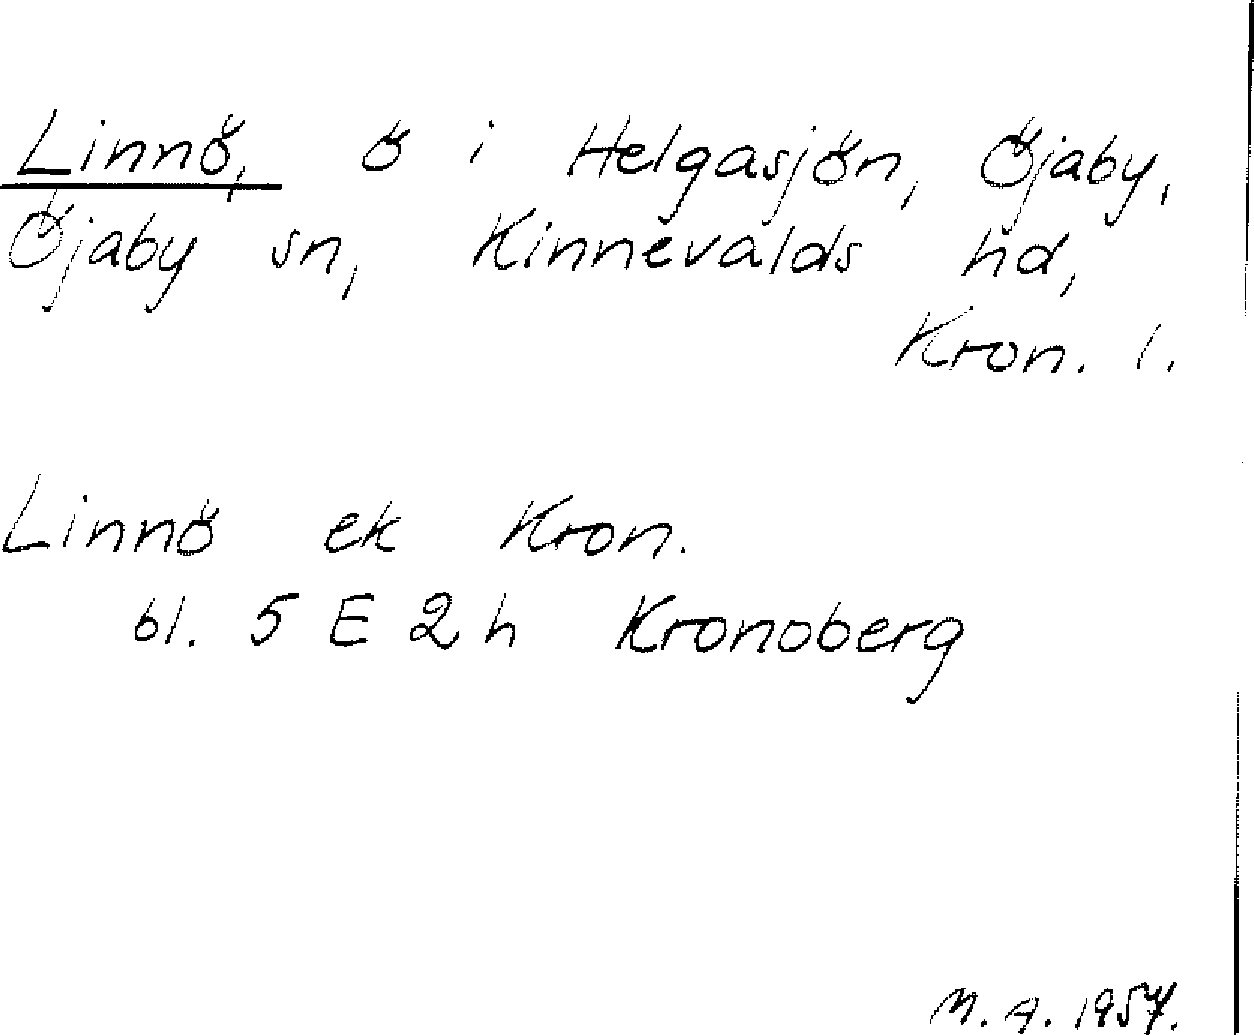 Linnö, ö i Helgasjön, Öjaby,
Öjaby sn, Kinnevalds hd,
Kron. l.
Linnö ek Kron.
bl. 5 E 2 h Kronoberg
M. A. 1957.